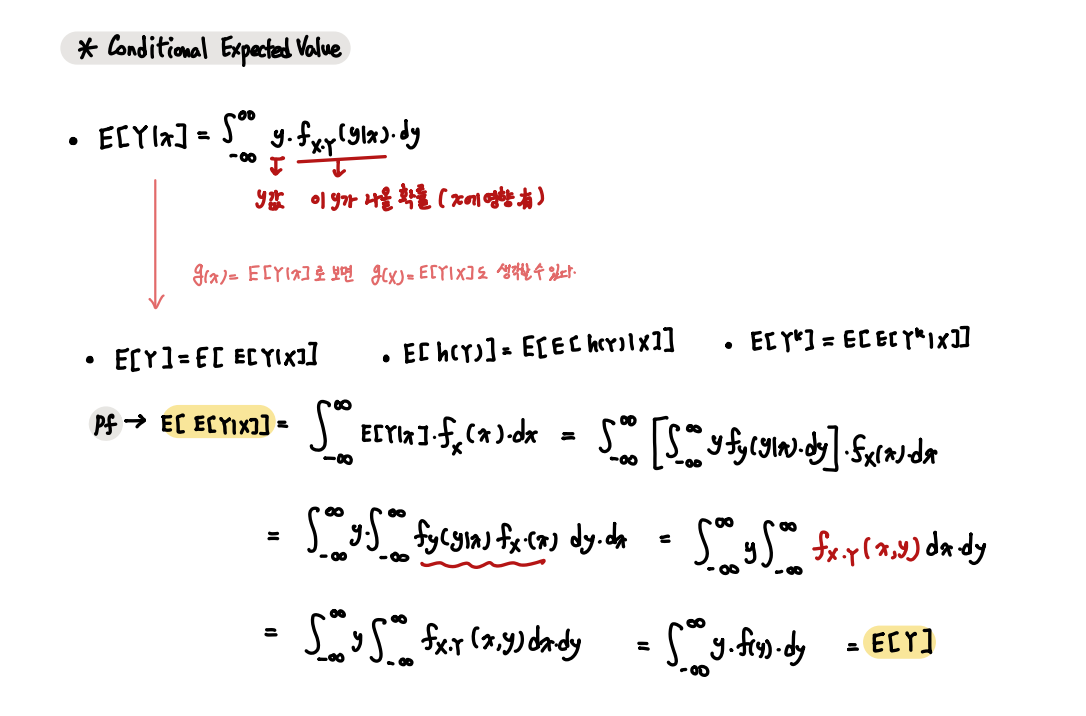 * Conditional Expected Value
• E[Y|x] = ∫_{-∞}^{∞} y · f_{X·Y}(y|x) · dy
y값 이 y가 나올 확률 (x에 영향 有)
g(x) = E[Y|x]로 보면 g(X) = E[Y|X]도 생각할 수 있다.
• E[Y] = E[ E[Y|X]] • E[ h(Y)] = E[ E[ h(Y)|X]] • E[Y^k] = E[ E[Y^k|X]]
pf → E[ E[Y|X]] = ∫_{-∞}^{∞} E[Y|x] · f_X(x) · dx = ∫_{-∞}^{∞} [∫_{-∞}^{∞} y f_y(y|x) · dy] · f_X(x) · dx
= ∫_{-∞}^{∞} y · ∫_{-∞}^{∞} f_y(y|x) f_X · (x) dy · dx = ∫_{-∞}^{∞} y ∫_{-∞}^{∞} f_{X·Y}(x,y) dx · dy
= ∫_{-∞}^{∞} y ∫_{-∞}^{∞} f_{X·Y}(x,y) dx · dy = ∫_{-∞}^{∞} y · f(y) · dy = E[Y]